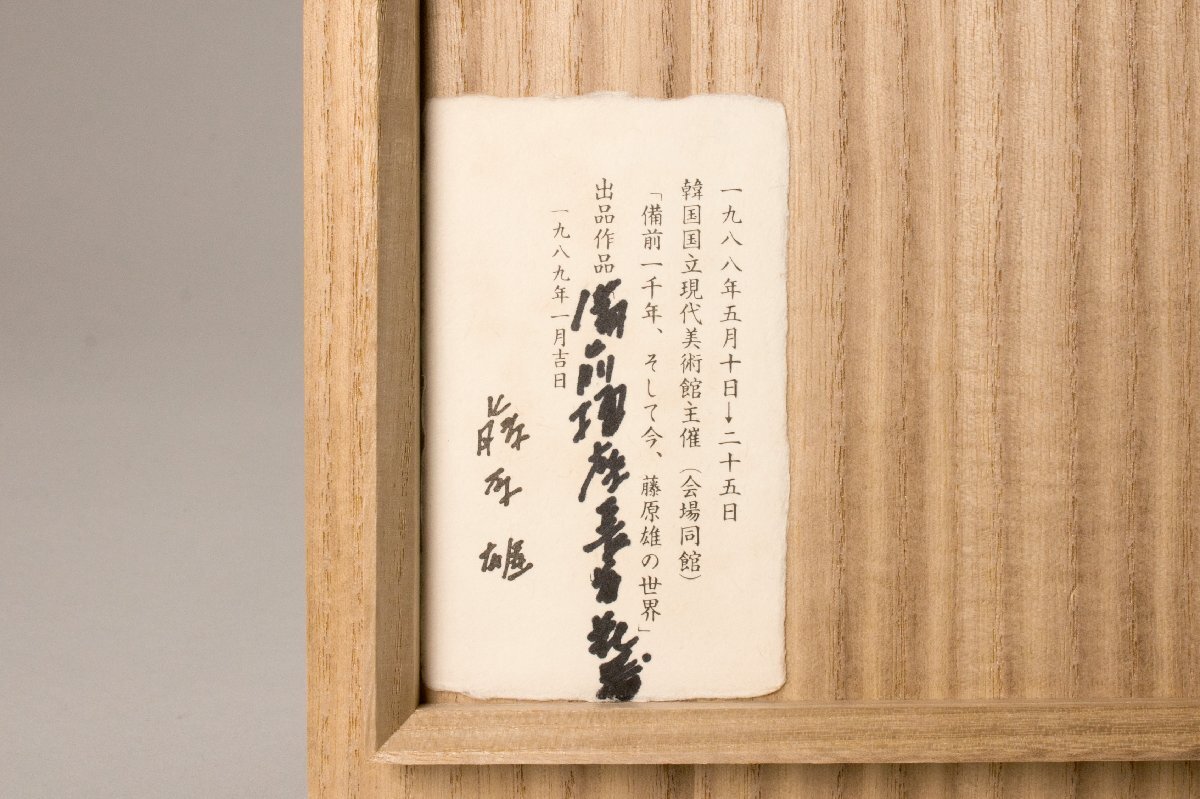 一九八八年五月十日→二十五日
韓国国立現代美術館主催（会場同館）
「備前一千年、そして今、藤原雄の世界」
出品作品 備前
一九八九年一月吉日
藤原雄